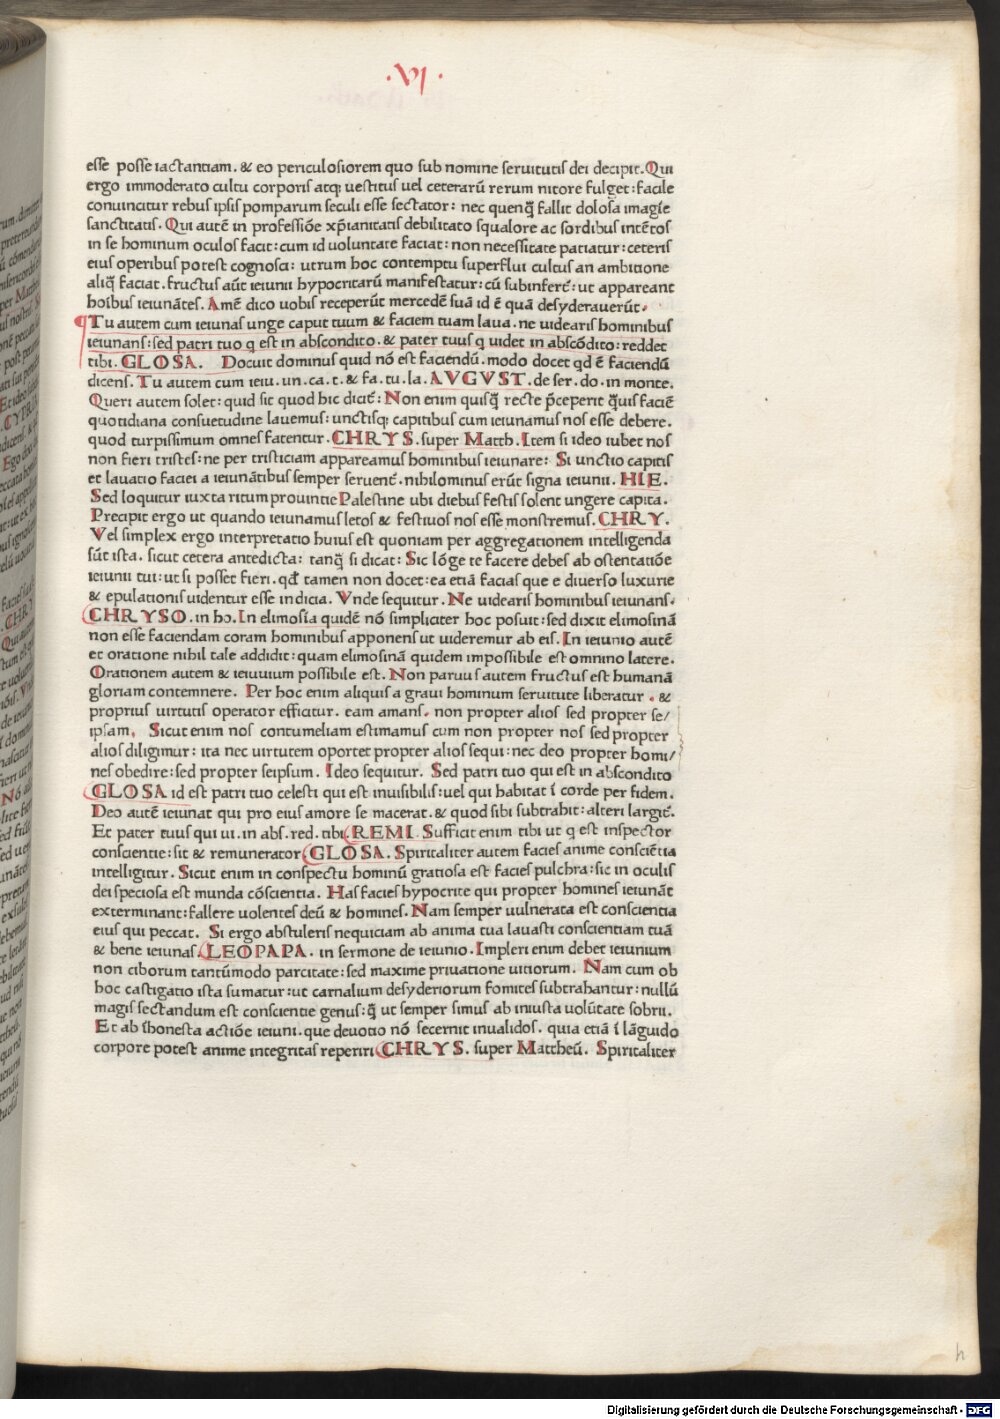 ·VI·
esse posse iactantiam. & eo periculosiorem quo sub nomine seruitutis dei decipit. Qui
ergo immoderato cultu corporis atqꝫ uestitus uel ceterarū rerum nitore fulget: facile
conuincitur rebus ipsis pomparum seculi esse sectator: nec quenq̄ fallit dolosa imagīe
sanctitatis. Qui autē in professiōe xp̄ianitatis debilitato squalore ac sordibus intētos
in se hominum oculos facit: cum id uoluntate faciat: non necessitate patiatur: ceteris
eius operibus potest cognosci: utrum hoc contemptu superflui cultus an ambitione
aliq̄ faciat. fructus aūt ieiunii hypocritarū manifestatur: cū subinfert̄: ut appareant
hoībus ieiunātes. Amē dico uobis receperūt mercedē suā id ē quā desyderauerūt.
Tu autem cum ieiunas unge caput tuum & faciem tuam laua. ne uidearis hominibus
ieiunans: sed patri tuo q est in abscondito. & pater tuus q uidet in abscōdito: reddet
tibi. GLOSA. Docuit dominus quid nō est faciendū. modo docet qd ē faciendū
dicens. Tu autem cum ieiu. un. ca. t. & fa. tu. la. AVGVST. de ser. do. in monte.
Queri autem solet: quid sit quod hic dicit̄: Non enim quisq̄ recte p̄ceperit q̄uis faciē
quotidiana consuetudine lauemus: unctisqꝫ capitibus cum ieiunamus nos esse debere.
quod turpissimum omnes fatentur. CHRYS. super Matth. Item si ideo iubet nos
non fieri tristes: ne per tristiciam appareamus hominibus ieiunare: Si unctio capitis
et lauatio faciei a ieiunātibus semper seruent̄. nihilominus erūt signa ieiunii. HIE.
Sed loquitur iuxta ritum prouintie Palestine ubi diebus festis solent ungere capita.
Precipit ergo ut quando ieiunamus letos & festiuos nos esse monstremus. CHRY.
Vel simplex ergo interpretatio huius est quoniam per aggregationem intelligenda
sūt ista. sicut cetera antedicta: tanq̄ si dicat: Sic lōge te facere debes ab ostentatiōe
ieiunii tui: ut si posset fieri. qd̄ tamen non docet: ea etiā facias que e diuerso luxurie
& epulationis uidentur esse indicia. Vnde sequitur. Ne uidearis hominibus ieiunans.
CHRYSO. in ho. In elimosīa quidē nō simpliciter hoc posuit: sed dixit elimosinā
non esse faciendam coram hominibus apponens ut uideremur ab eis. In ieiunio autē
et oratione nihil tale addidit: quam elimosinā quidem impossibile est omnino latere.
Orationem autem & ieiuuium possibile est. Non paruus autem fructus est humanā
gloriam contemnere. Per hoc enim aliquis a graui hominum seruitute liberatur. &
proprius uirtutis operator efficitur. eam amans. non propter alios sed propter se/
ipsam. Sicut enim nos contumeliam estimamus cum non propter nos sed propter
alios diligimur: ita nec uirtutem oportet propter alios sequi: nec deo propter homi/
nes obedire: sed propter seipsum. Ideo sequitur. Sed patri tuo qui est in abscondito
GLOSA id est patri tuo celesti qui est inuisibilis: uel qui habitat ī corde per fidem.
Deo autē ieiunat qui pro eius amore se macerat. & quod sibi subtrahit: alteri largit̄.
Et pater tuus qui ui. in abs. red. tibi. REMI. Sufficit enim tibi ut q est inspector
conscientie: sit & remunerator GLOSA. Spiritaliter autem facies anime consciētia
intelligitur. Sicut enim in conspectu hominū gratiosa est facies pulchra: sic in oculis
dei speciosa est munda cōscientia. Has facies hypocrite qui propter homines ieiunāt
exterminant: fallere uolentes deū & homines. Nam semper uulnerata est conscientia
eius qui peccat. Si ergo abstuleris nequiciam ab anima tua lauasti conscientiam tuā
& bene ieiunas. LEO PAPA. in sermone de ieiunio. Impleri enim debet ieiunium
non ciborum tantūmodo parcitate: sed maxime priuatione uitiorum. Nam cum ob
hoc castigatio ista sumatur: ut carnalium desyderiorum fomites subtrahantur: nullū
magis sectandum est conscientie genus: q̄ ut semper simus ab iniusta uolūtate sobrii.
Et ab īhonesta actiōe ieiuni. que deuotio nō secernit inualidos. quia etiā ī lāguido
corpore potest anime integritas reperiri CHRYS. super Mattheū. Spiritaliter
h
Digitalisierung gefördert durch die Deutsche Forschungsgemeinschaft - DFG